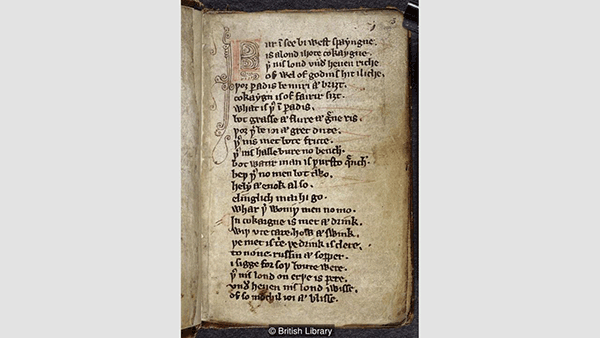 Fur ī see bi west spayngne.
is a lond ihote cokaygne.
þ̉ nis lond vnd̉ heuen riche
of wel of godnis hit iliche.
þoȝ padis be miri & briȝt.
cokaygn is of fairir siȝt.
what is þ̉ ī padis.
bot grasse & flure & g̉ne ris.
þoȝ þ̉ be ioi & gret dute.
þ̉ nis met bote frute.
þ̉ nis halle bure no bench.
bot watir man is þursto q̄nch.
beþ þ̉ no men bot two.
hely & enok also.
elinglich mai hi go.
whar þ̉ woniþ men no mo.
In cokaigne is met & drink.
wiþ vte care how & swink.
þe met is tr̉e þe drink is clere.
to none russin & sopper.
i sigge for soþ boute were.
þ̉ nis lond on erþe is pere.
vnd̉ heuen nis lond iwisse.
of so mochil ioi & blisse.
© British Library